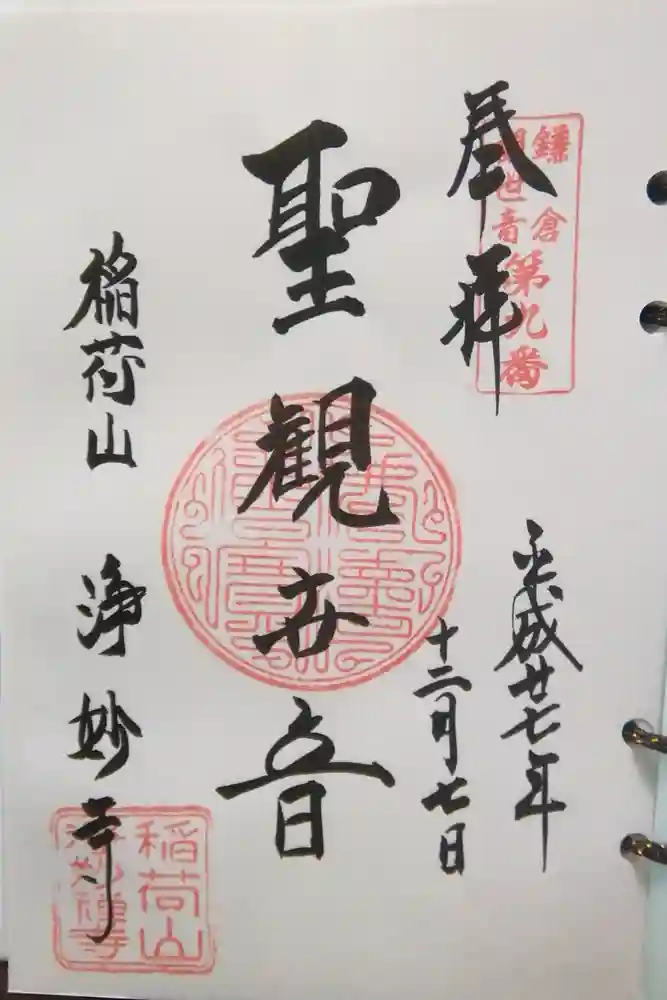 奉拝
鎌倉
観世音
第九番
平成廿七年
十二月七日
聖観世音
稲荷山 浄妙寺
稲荷山
浄妙禅寺